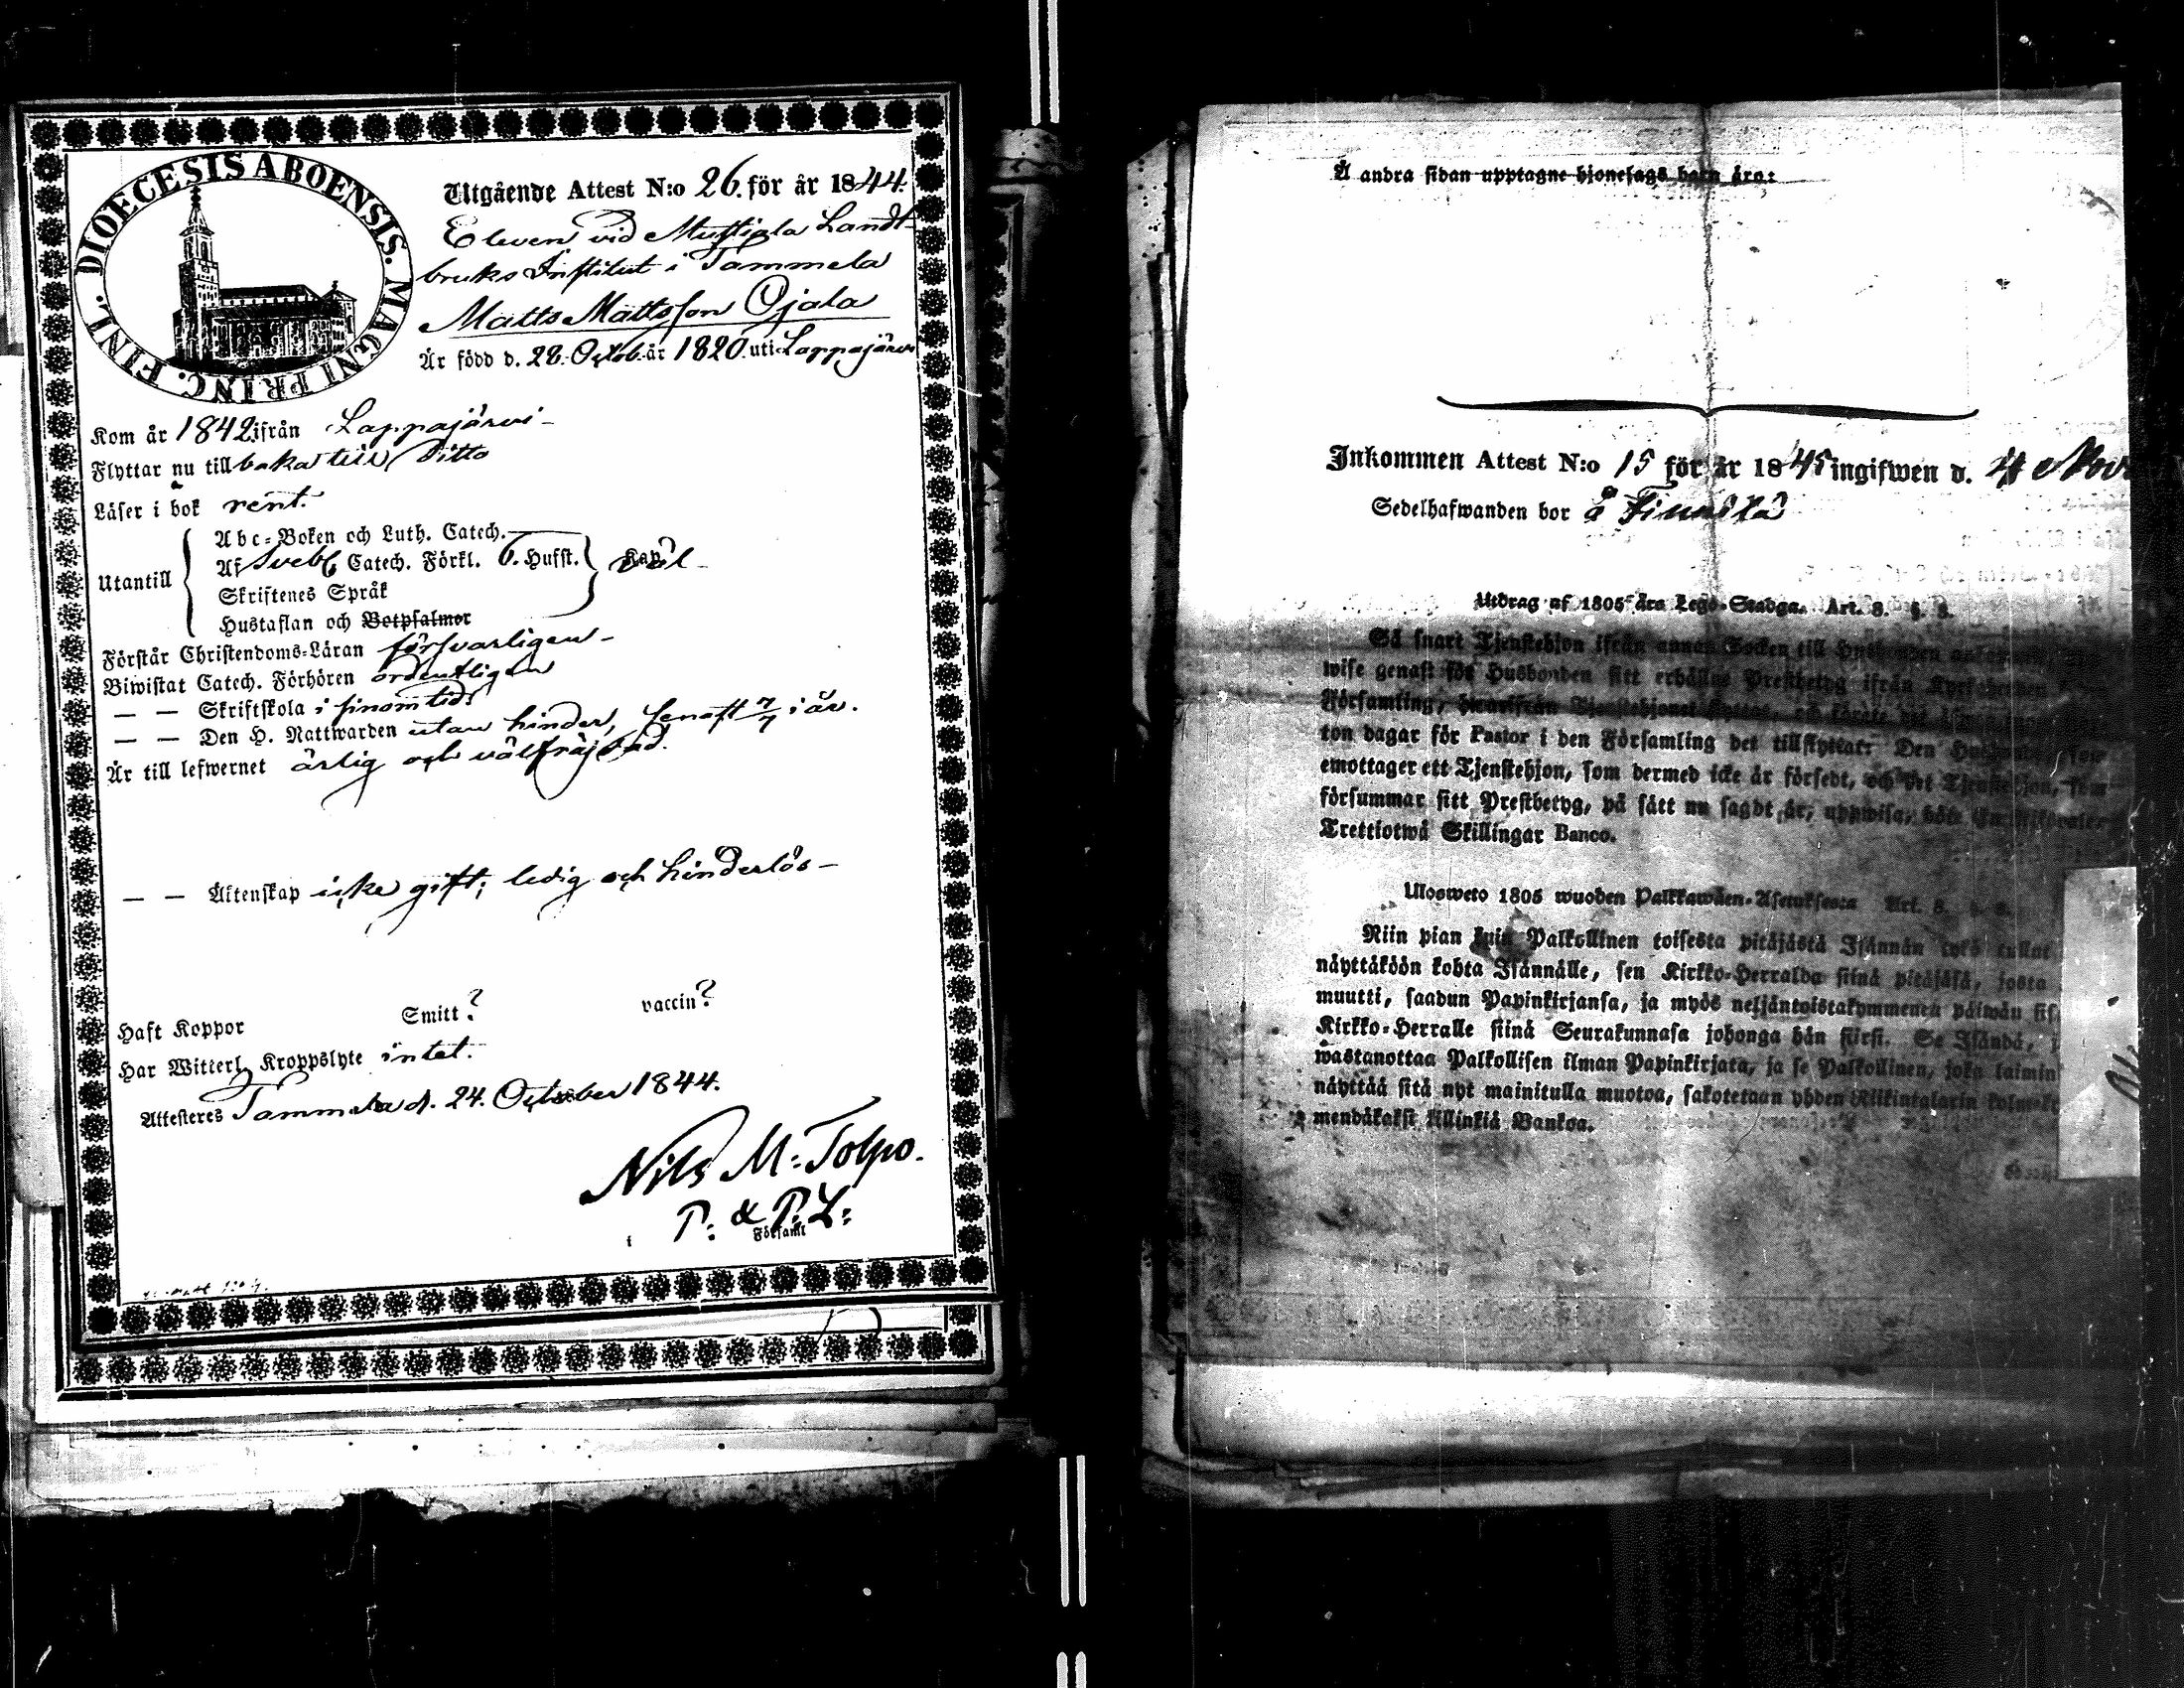 DIOECESIS ABOENSIS. MAGNI PRINC. FINL.
Utgående Attest N:o 26. för år 1844.
Eleven vid Mustiala Landt-
bruks Institut i Tammela
Matts Mattsson Ojala
Är född d. 28. Octob. år 1820. uti Lappajärvi
Kom år 1842 ifrån Lappajärvi -
Flyttar nu tillbaka till Ditto
Läser i bok rent.
Utantill
Abc-Boken och Luth. Catech.
Af Sveb. Catech. Förkl. 6. Hufst.
Skriftenes Språk
Hustaflan och Botpsalmer
väl -
Förstår Christendoms-Läran försvarligen -
Biwistat Catech. Förhören ordentligen
— — Skriftskola i sinom tid.
— — Den H. Nattwarden utan hinder, senast 7/7 i år.
Är till lefwernet ärlig och välfräjdad.
— — Äktenskap icke gift; ledig och hinderlös -
Haft Koppor Smitt? vaccin?
Har Witterl. Kroppslyte intet.
Attesteres Tammela d. 24. October 1844.
Nils M. Tolpo.
P: & P: L:
i Församl
Å andra sidan upptagne hjonelags barn äro:
Inkommen Attest N:o 15 för år 1845 ingifwen d. Nov.
Sedelhafwanden bor å Finnilä
Utdrag af 1805 års Lego-Stadga. Art. 8. §. 8.
Så snart Tjenstehjon ifrån annan Socken till Husbonden
wise genast för Husbonden sitt erhållne Prestbetyg ifrån Kyrkoherden
Församling, hwarifrån Tjenstehjonet flyttat, och
ton dagar för Pastor i den Församling det tillflyttat. Den
emottager ett Tjenstehjon, som dermed icke är försedt, och det Tjenstehjon, som
försummar sitt Prestbetyg, på sätt nu sagdt är, uppwisa, böte En Riksdaler
Trettiotwå Skillingar Banco.
Ulosweto 1805 wuoden Palkkawäen-Asetuksesta Art. 8. §. 8.
Niin pian kuin Palkollinen toisesta pitäjästä Isännän tykö tullut
näyttäköön kohta Isännälle, sen Kirkko-Herralda siinä pitäjäsä, josta
muutti, saadun Papinkirjansa, ja myös neljäntoistakymmenen päiwän sis
Kirkko-Herralle siinä Seurakunnasa johonga hän siirsi. Se Isändä, j
wastanottaa Palkollisen ilman Papinkirjata, ja se Palkollinen, joka laimin
näyttää sitä nyt mainitulla muotoa, sakotetaan yhden Riikintalarin kolme
mendäkaksi killinkiä Bankoa.